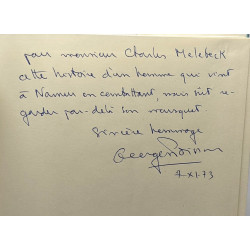 pour monsieur Charles Melebeck
cette histoire d'un homme qui vint
à Namur en combattant, mais sut re-
garder par-delà son mousquet.
Sincère hommage
Georges Poisson
4-XI-73